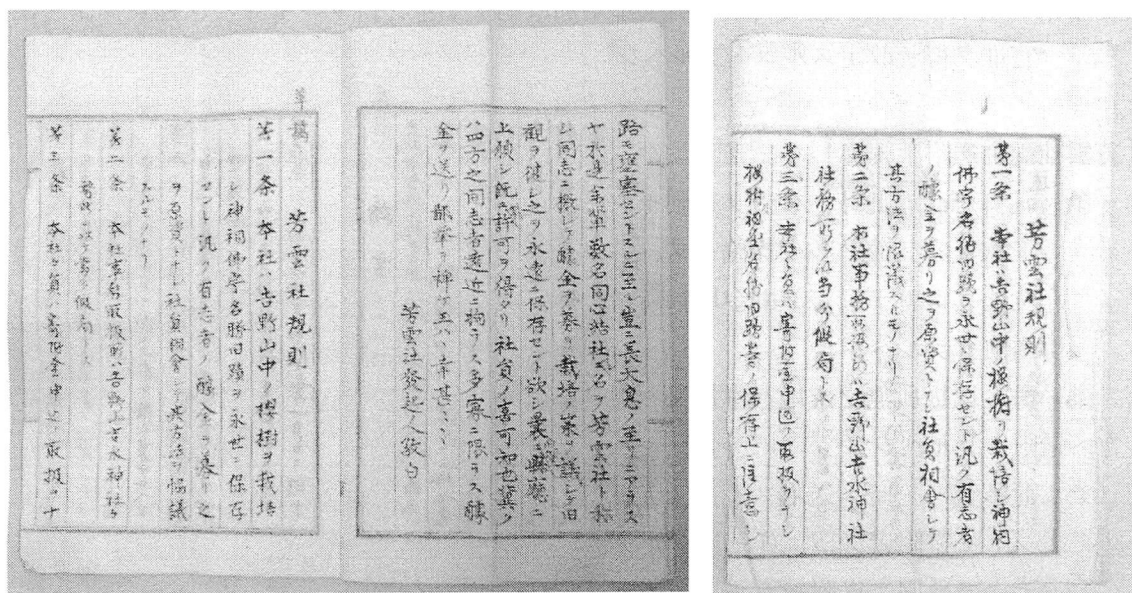 路モ壅塞セントスルニ至ル豈ニ長大息ノ至リニヤラス
ヤ於是余輩数名同心結社シ名ケ芳雲社ト称
シ同志ニ檄シテ醵金ヲ募リ栽培ノ策ヲ議シテ旧
観ヲ復シ之ヲ永遠ニ保存セント欲シ曩ニ縣廳ニ
上願シ既ニ許可ヲ得タリ社員ノ喜可知也冀ク
ハ四方之同志者遠近ニ拘ラス多寡ニ限ラス醵
金ヲ送リ斯挙ヲ裨ケ玉ハヽ幸甚〻〻
芳雲社發起人敬白
草稿
芳雲社規則
第一条 本社ハ吉野山中ノ櫻樹ヲ栽培
シ神祠佛宇名勝旧蹟ヲ永世ニ保存
セントシ汎ク有志者ノ醵金ヲ募リ之
ヲ原資トナシ社員相會シテ其方法ヲ協議
スルモノナリ
第二条 本社事務取扱所ハ吉野山吉水神社ヲ
仮局
第三条 本社々員ハ寄附金申込取扱ヲナ
芳雲社規則
第一条 本社ハ吉野山中ノ櫻樹ヲ栽培シ神祠
佛宇名勝旧蹟ヲ永世ニ保存セント汎ク有志者
ノ醵金ヲ募リ之ヲ原資トナシ社員相會シテ
其方法ヲ協議スルモノナリ
第二条 本社事務取扱所ハ吉野山吉水神社
社務所ヲ以当分仮局トス
第三条 本社々員ハ寄附金申込ヲ取扱ヲナシ
櫻樹祠堂名勝旧跡等ノ保存上ニ注意シ